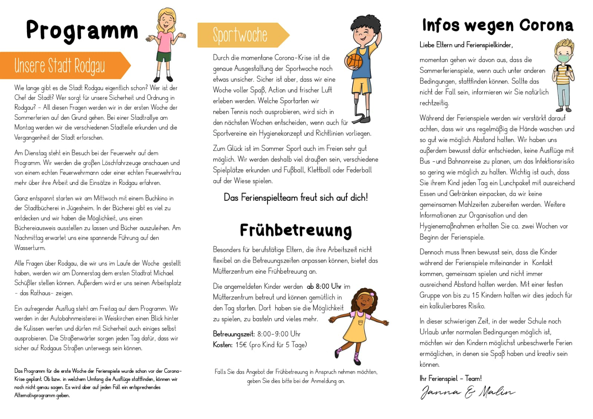 Programm
Unsere Stadt Rodgau
Wie lange gibt es die Stadt Rodgau eigentlich schon? Wer ist der
Chef der Stadt? Wer sorgt für unsere Sicherheit und Ordnung in
Rodgau? - All diesen Fragen werden wir in der ersten Woche der
Sommerferien auf den Grund gehen. Bei einer Stadtrallye am
Montag werden wir die verschiedenen Stadtteile erkunden und die
Vergangenheit der Stadt erforschen.
Am Dienstag steht ein Besuch bei der Feuerwehr auf dem
Programm. Wir werden die großen Löschfahrzeuge anschauen und
von einem echten Feuerwehrmann oder einer echten Feuerwehrfrau
mehr über ihre Arbeit und die Einsätze in Rodgau erfahren.
Ganz entspannt starten wir am Mittwoch mit einem Buchkino in
der Stadtbücherei in Jügesheim. In der Bücherei gibt es viel zu
entdecken und wir haben die Möglichkeit, uns einen
Büchereiausweis ausstellen zu lassen und Bücher auszuleihen. Am
Nachmittag erwartet uns eine spannende Führung auf den
Wasserturm.
Alle Fragen über Rodgau, die wir uns im Laufe der Woche gestellt
haben, werden wir am Donnerstag dem ersten Stadtrat Michael
Schüßler stellen können. Außerdem wird er uns seinen Arbeitsplatz
- das Rathaus- zeigen.
Ein aufregender Ausflug steht am Freitag auf dem Programm. Wir
werden in der Autobahnmeisterei in Weiskirchen einen Blick hinter
die Kulissen werfen und dürfen mit Sicherheit auch einiges selbst
ausprobieren. Die Straßenwärter sorgen jeden Tag dafür, dass wir
sicher auf Rodgaus Straßen unterwegs sein können.
Das Programm für die erste Woche der Ferienspiele wurde schon vor der Corona-
Krise geplant. Ob bzw. in welchem Umfang die Ausflüge stattfinden, können wir
noch nicht genau sagen. Es wird aber auf jeden Fall ein entsprechendes
Alternativprogramm geben.
Sportwoche
Durch die momentane Corona-Krise ist die
genaue Ausgestaltung der Sportwoche noch
etwas unsicher. Sicher ist aber, dass wir eine
Woche voller Spaß, Action und frischer Luft
erleben werden. Welche Sportarten wir
neben Tennis noch ausprobieren, wird sich in
den nächsten Wochen entscheiden, wenn auch für
Sportvereine ein Hygienekonzept und Richtlinien vorliegen.
Zum Glück ist im Sommer Sport auch im Freien sehr gut
möglich. Wir werden deshalb viel draußen sein, verschiedene
Spielplätze erkunden und Fußball, Kletball oder Federball
auf der Wiese spielen.
Das Ferienspielteam freut sich auf dich!
Frühbetreuung
Besonders für berufstätige Eltern, die ihre Arbeitszeit nicht
flexibel an die Betreuungszeiten anpassen können, bietet das
Mütterzentrum eine Frühbetreuung an.
Die angemeldeten Kinder werden ab 8:00 Uhr im
Mütterzentrum betreut und können gemütlich in
den Tag starten. Dort haben sie die Möglichkeit
zu spielen, zu basteln und vieles mehr.
Betreuungszeit: 8:00-9:00 Uhr
Kosten: 15€ (pro Kind für 5 Tage)
Falls Sie das Angebot der Frühbetreuung in Anspruch nehmen möchten,
geben Sie dies bitte bei der Anmeldung an.
Infos wegen Corona
Liebe Eltern und Ferienspielkinder,
momentan gehen wir davon aus, dass die
Sommerferienspiele, wenn auch unter anderen
Bedingungen, stattfinden können. Sollte das
nicht der Fall sein, informieren wir Sie natürlich
rechtzeitig.
Während der Ferienspiele werden wir verstärkt darauf
achten, dass wir uns regelmäßig die Hände waschen und
so gut wie möglich Abstand halten. Wir haben uns
außerdem bewusst dafür entschieden, keine Ausflüge mit
Bus -und Bahnanreise zu planen, um das Infektionsrisiko
so gering wie möglich zu halten. Wichtig ist auch, dass
Sie ihrem Kind jeden Tag ein Lunchpaket mit ausreichend
Essen und Getränken einpacken, da wir keine
gemeinsamen Mahlzeiten zubereiten werden. Weitere
Informationen zur Organisation und den
Hygienemaßnahmen erhalten Sie ca. zwei Wochen vor
Beginn der Ferienspiele.
Dennoch muss Ihnen bewusst sein, dass die Kinder
während der Ferienspiele miteinander in Kontakt
kommen, gemeinsam spielen und nicht immer
ausreichend Abstand halten werden. Mit einer festen
Gruppe von bis zu 15 Kindern halten wir dies jedoch für
ein kalkulierbares Risiko.
In dieser schwierigen Zeit, in der weder Schule noch
Urlaub unter normalen Bedingungen möglich ist,
möchten wir den Kindern möglichst unbeschwerte Ferien
ermöglichen, in denen sie Spaß haben und kreativ sein
können.
Ihr Ferienspiel - Team!
Janna & Malin